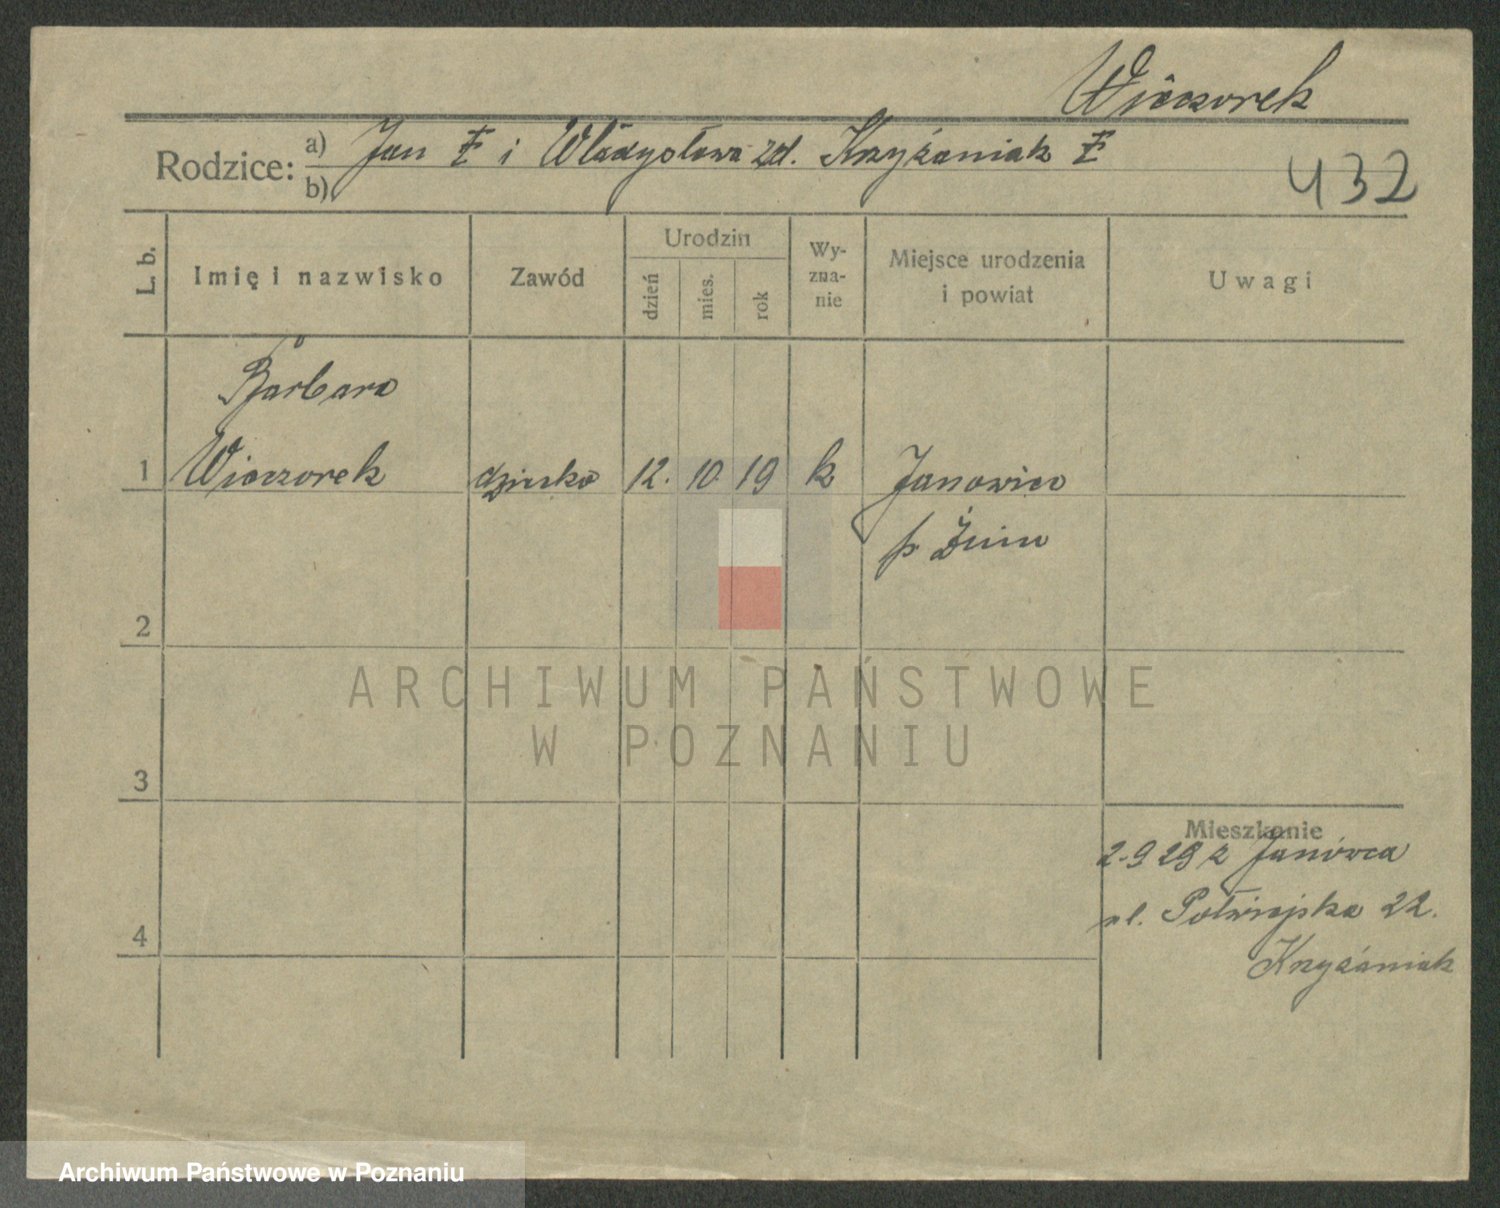 Wieczorek
Rodzice: a) Jan ‡ i Władysława zd. Krzyżaniak ‡
b)
432
L. b.
Imię i nazwisko
Zawód
Urodzin
dzień
mies.
rok
Wy-
zna-
nie
Miejsce urodzenia
i powiat
Uwagi
Barbara
1 Wieczorek dziecko 12. 10. 19 k Janowiec
p. Żnin
2
ARCHIWUM PAŃSTWOWE
W POZNANIU
3
Mieszkanie
2-9 29 z Janówca
ul. Półwiejska 22.
4
Krzyżaniak
Archiwum Państwowe w Poznaniu